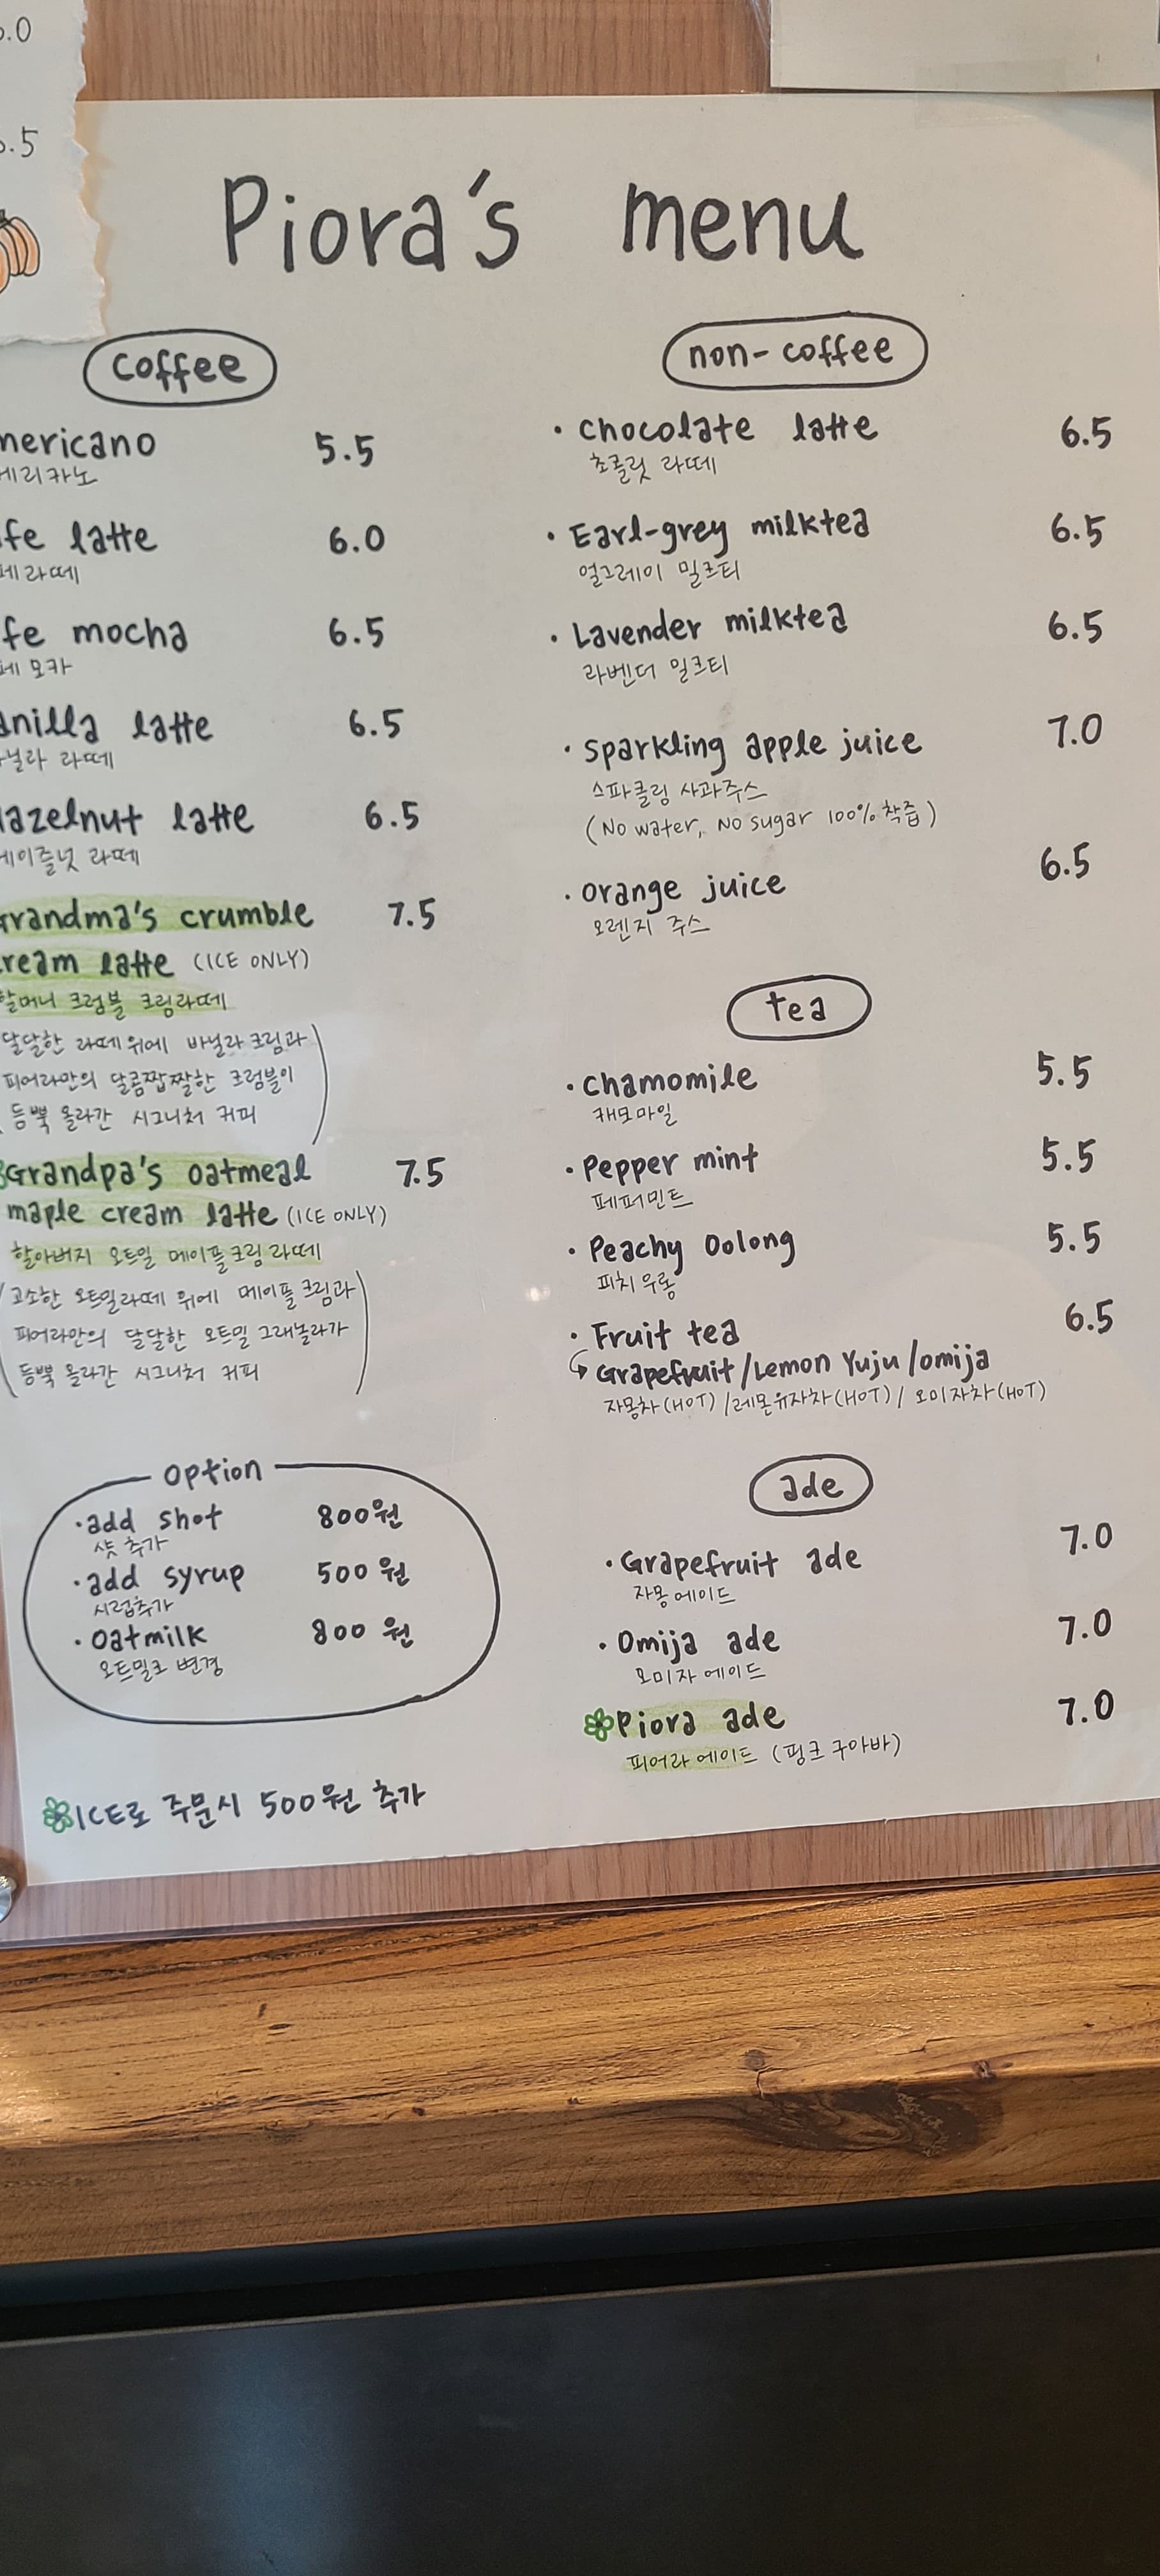 .0
.5
Piora's menu
coffee
mericano 5.5
메리카노
fe latte 6.0
페 라떼
fe mocha 6.5
페 모카
anilla latte 6.5
닐라 라떼
azelnut latte 6.5
헤이즐넛 라떼
Grandma's crumble 7.5
ream latte (ICE ONLY)
할머니 크럼블 크림라떼
달달한 라떼 위에 바닐라 크림과
피어라만의 달콤짭짤한 크럼블이
듬뿍 올라간 시그니처 커피
Grandpa's oatmeal 7.5
maple cream latte (ICE ONLY)
할아버지 오트밀 메이플 크림 라떼
고소한 오트밀라떼 위에 메이플 크림과
피어라만의 달달한 오트밀 그래놀라가
듬뿍 올라간 시그니처 커피
option
·add shot 800원
샷 추가
·add syrup 500원
시럽추가
·oatmilk 800원
오트밀크 변경
ICE로 주문시 500원 추가
non-coffee
·chocolate latte 6.5
초콜릿 라떼
·Earl-grey milktea 6.5
얼그레이 밀크티
·Lavender milktea 6.5
라벤더 밀크티
·sparkling apple juice 7.0
스파클링 사과주스
(No water, No sugar 100% 착즙)
·orange juice 6.5
오렌지 주스
tea
·chamomile 5.5
캐모마일
·pepper mint 5.5
페퍼민트
·Peachy Oolong 5.5
피치 우롱
·Fruit tea 6.5
↪Grapefruit/Lemon Yuju/omija
자몽차(HOT)/레몬유자차(HOT)/오미자차(HOT)
ade
·Grapefruit ade 7.0
자몽에이드
·Omija ade 7.0
오미자 에이드
Piora ade 7.0
피어라 에이드 (핑크 구아바)